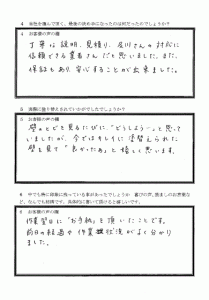 4 当社を選んで頂く、最後の決め手になったのは何だったのでしょうか?
4 お客様の声の欄
丁寧な説明、見積り、及川さんの対応に
信頼できる業者さんだと思いました。また、
保証もあり、安心することが出来ました。
5 実際に塗り替えをされていかがでしたでしょうか?
5 お客様の声の欄
壁のヒビを見るたびに、"どうしよう…"と思って
いましたが、今ではキレイに塗替えられた
壁を見て"良かったぁ"と嬉しく思います。
6 中でも特に印象に残っている事があったでしょうか、喜びの声、励ましのお言葉な
ど、なんでも結構です。具体的に書いて頂けると嬉しいです。
6 お客様の声の欄
作業翌日に"お手紙"を頂いたことです。
前日の経過や作業状況がよく分かり
ました。